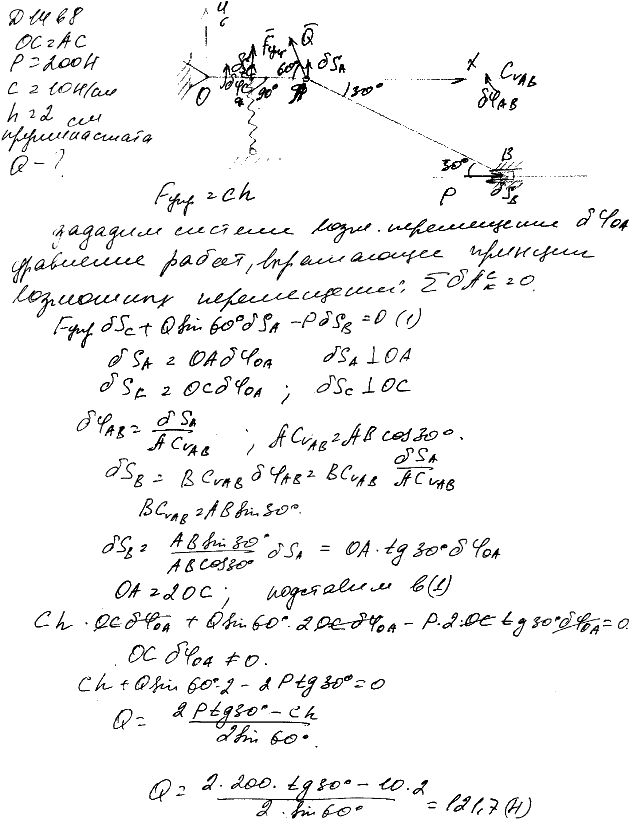 Д1468
OC=AC
P=200Н
C=10Н/см
h=2 см
пружина сжата
Q-?
y
C
F̄упр
Q̄
δS_A
60°
90°
O
A
130°
x
C_VAB
δφ_AB
30°
B
P
δS_B
Fупр = Ch
зададим системе возм. перемещение δφ_OA
уравнение работ, выражающее принцип
возможных перемещений: ΣδA_K^C=0.
Fупр δS_C + Q sin 60° δS_A - P δS_B = 0 (1)
δS_A = OA δφ_OA δS_A ⊥ OA
δS_C = OC δφ_OA ; δS_C ⊥ OC
δφ_AB = δS_A / AC_VAB ; AC_VAB = AB cos 30°.
δS_B = BC_VAB δφ_AB = BC_VAB δS_A / AC_VAB
BC_VAB = AB sin 30°.
δS_B = AB sin 30° / AB cos 30° δS_A = OA · tg 30° δφ_OA
OA = 2OC ; подставим в (1)
Ch · OC δφ_OA + Q sin 60° · 2OC δφ_OA - P · 2 · OC tg 30° δφ_OA = 0
OC δφ_OA ≠ 0.
Ch + Q sin 60° · 2 - 2P tg 30° = 0
Q = 2P tg 30° - Ch / 2 sin 60°
Q = 2 · 200 · tg 30° - 10 · 2 / 2 · sin 60° = 121,7 (Н)